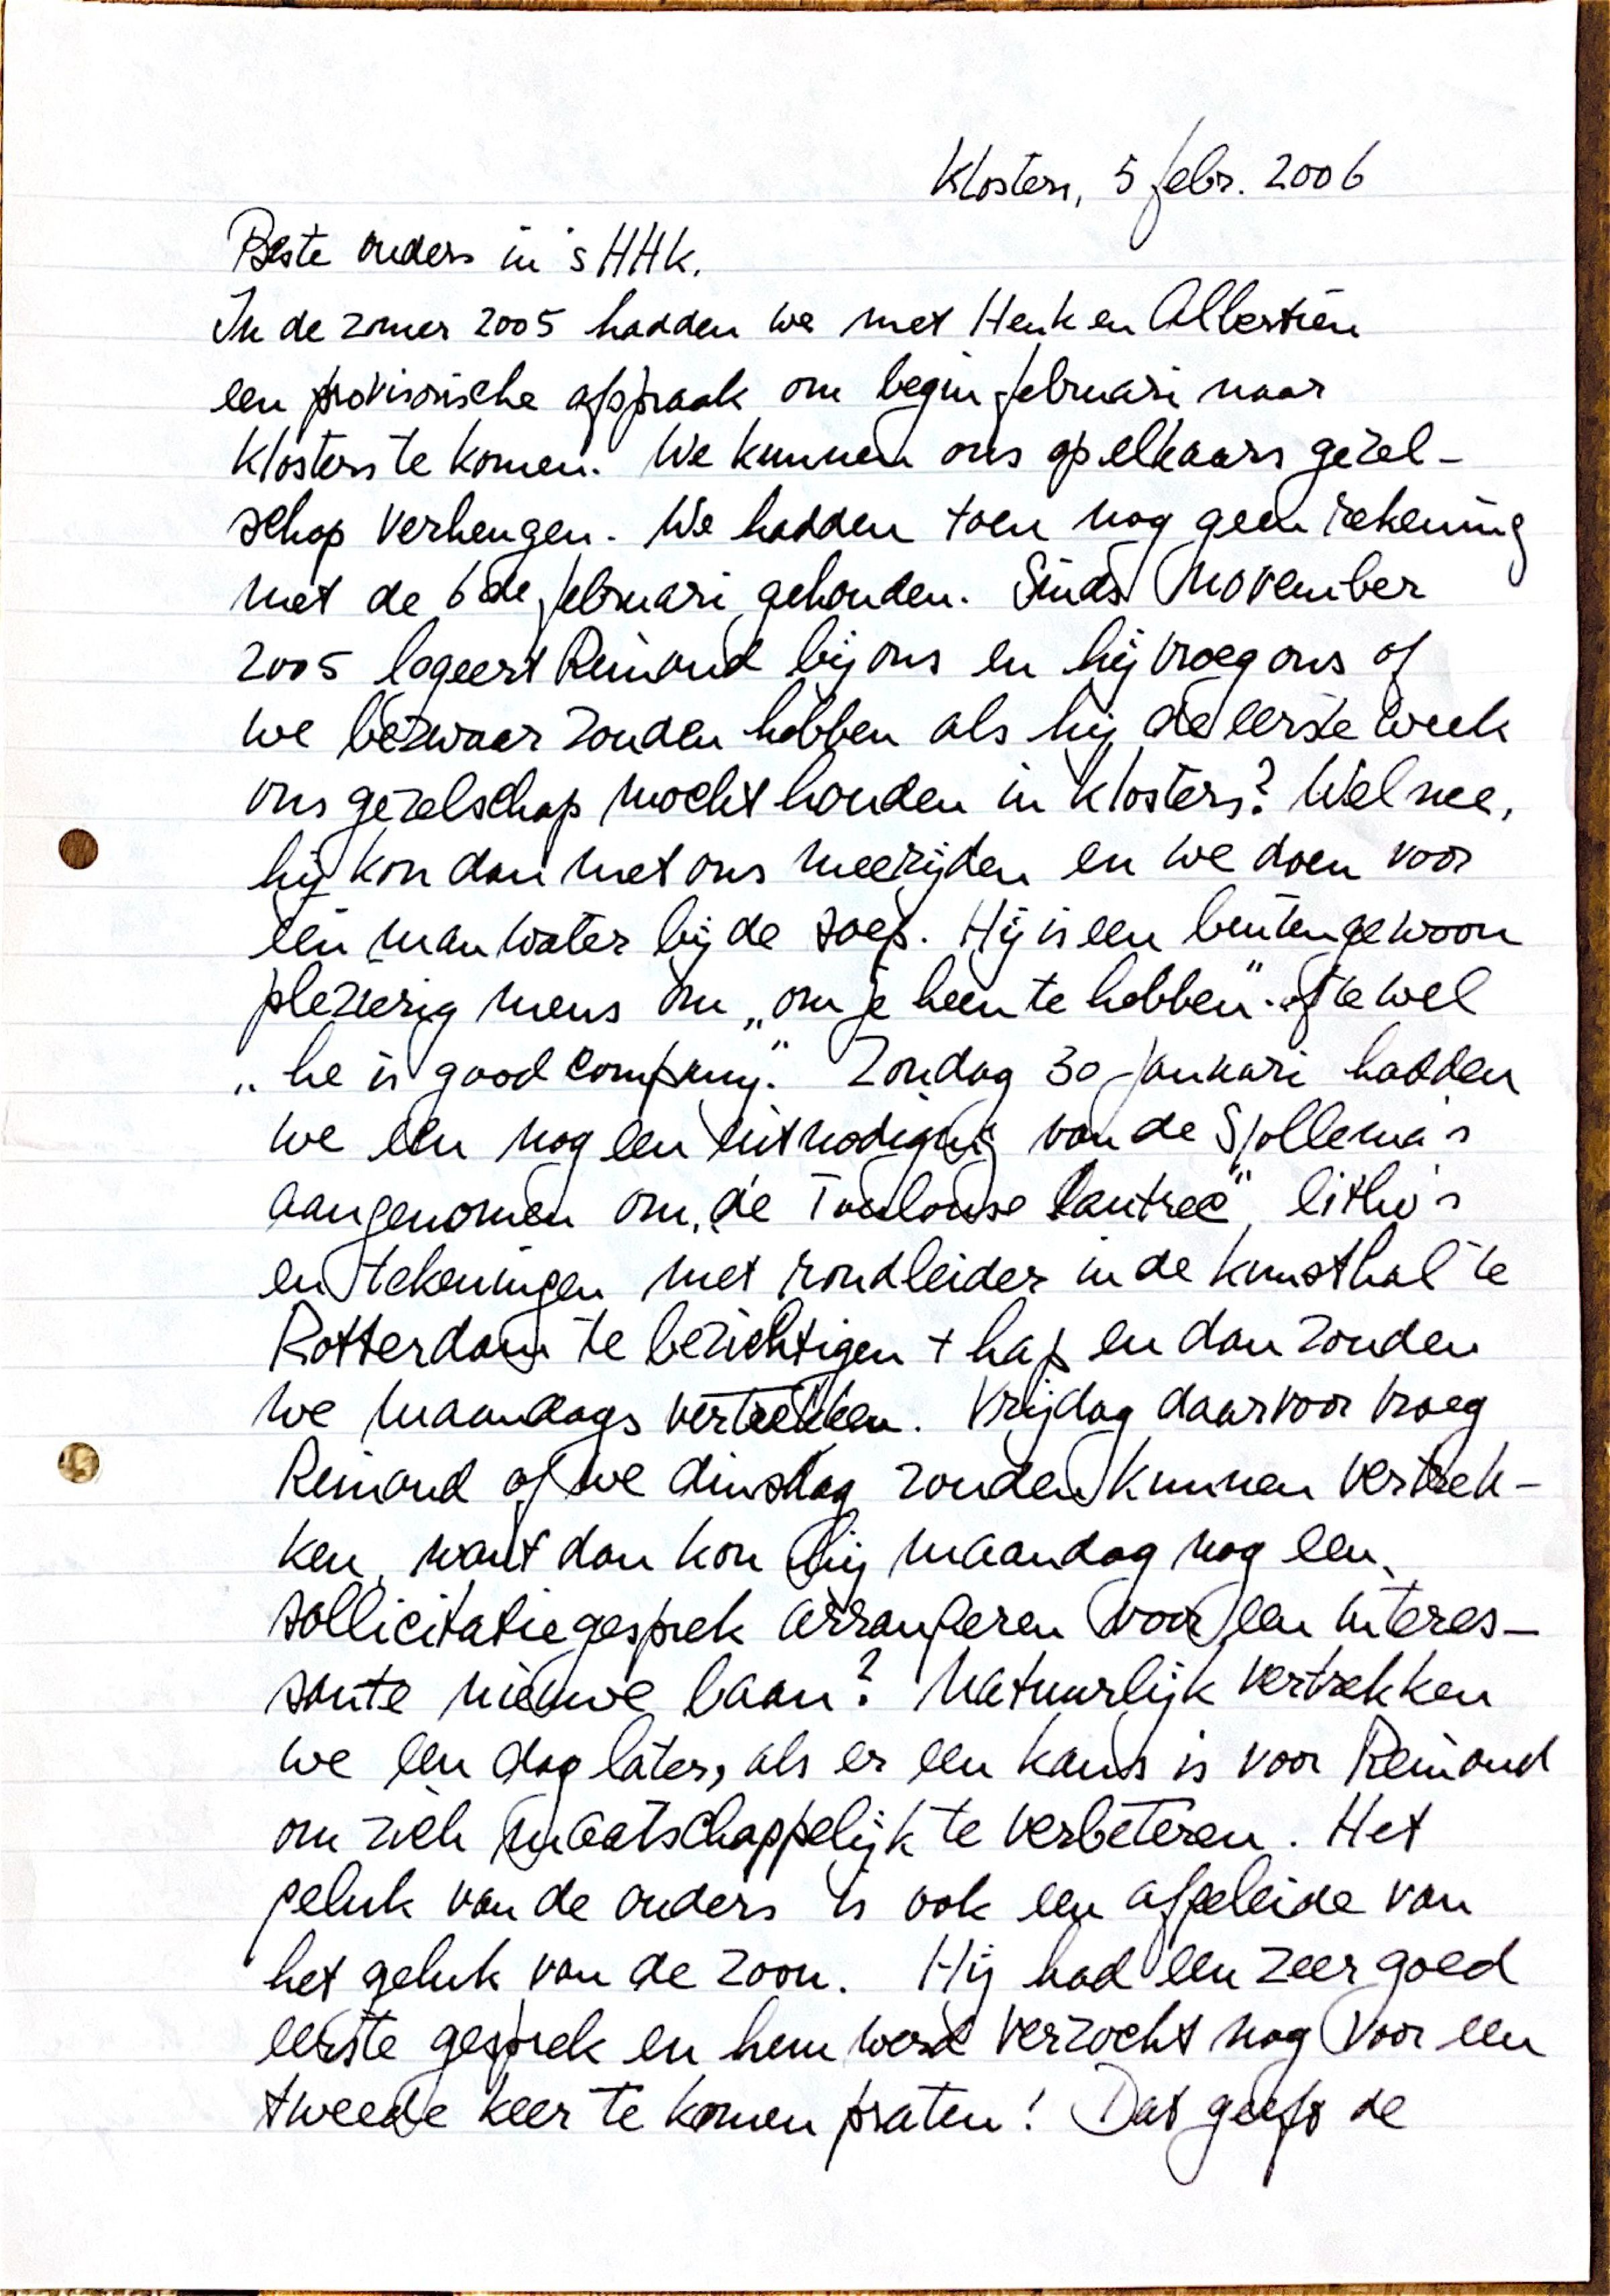 Klosters, 5 febr. 2006
Beste ouders in 's HHk.
In de zomer 2005 hadden we met Henk en Albertien
een provisorische afspraak om begin februari naar
Klosters te komen. We kunnen ons op elkaars gezel-
schap verheugen. We hadden toen nog geen rekening
met de 6de februari gehouden. Sinds November
2005 logeert Reinoud bij ons en hij vroeg ons of
we bezwaar zouden hebben als hij de eerste week
ons gezelschap mocht houden in Klosters? Wel nee,
hij kon dan met ons meerijden en we doen voor
één man water bij de soep. Hij is een buitengewoon
plezierig mens om „om je heen te hebben". ofte wel
„he is good company." Zondag 30 januari hadden
we een nog een uitnodiging van de Sjollema's
aangenomen om „de Toulouse Lautrec" litho's
en tekeningen met rondleider in de kunsthal te
Rotterdam te bezichtigen + hap en dan zouden
we maandags vertrekken. Vrijdag daarvoor vroeg
Reinoud of we dinsdag zouden kunnen vertrek-
ken, want dan kon hij maandag nog een
sollicitatiegesprek arrangeren voor een interes-
sante nieuwe baan? Natuurlijk vertrekken
we een dag later, als er een kans is voor Reinoud
om zich maatschappelijk te verbeteren. Het
geluk van de ouders is ook een afgeleide van
het geluk van de zoon. Hij had een zeer goed
eerste gesprek en hem werd verzocht nog voor een
tweede keer te komen praten! Dat geeft de